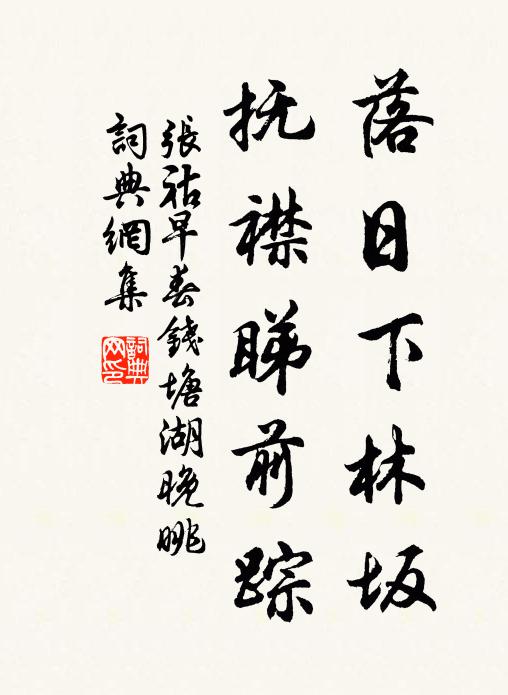 落日下林坂
抚襟睇前踪
張祜早春錢塘湖晚眺
詞典網集
詞典網印